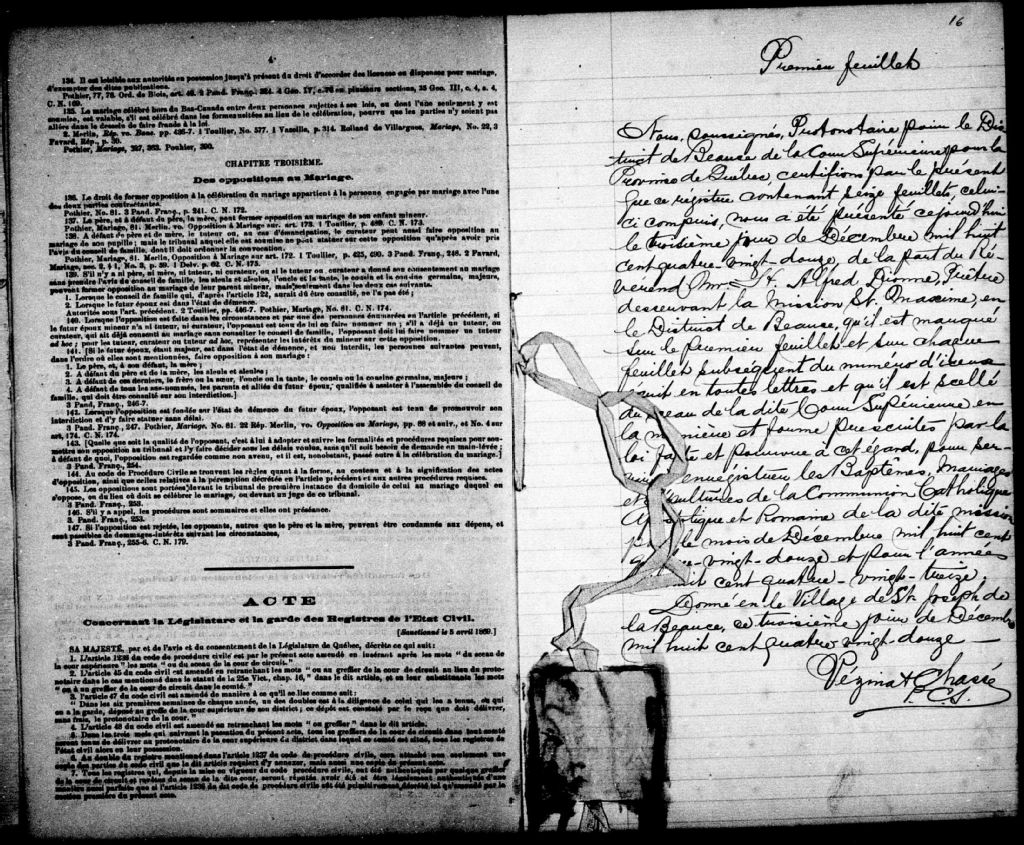 4
134. Il est loisible aux autorités en possession jusqu'à présent du droit d'accorder des licences ou dispenses pour mariage,
d'exempter des dites publications.
Pothier, 77, 78. Ord. de Blois, art. 40. 3 Pand. Franç. 264. 4 Geo. IV, c. 76 en plusieurs sections, 35 Geo. III, c. 4, s. 4,
C. N. 169.
135. Le mariage célébré hors du Bas-Canada entre deux personnes sujettes à ses lois, ou dont l'une seulement y est
soumise, est valable, s'il est célébré dans les formes usitées au lieu de la célébration, pourvu que les parties n'y soient pas
allées dans le dessein de faire fraude à la loi.
2. Merlin, Rép. vo. Bans. pp. 436-7. 1 Toullier, No. 577. 1 Vazeille, p. 314. Rolland de Villargues, Mariage, No. 22, 3
Favard, Rép., p. 30.
Pothier, Mariage, 327, 363. Pouhier, 390.
CHAPITRE TROISIÈME.
Des oppositions au Mariage.
136. Le droit de former opposition à la célébration du mariage appartient à la personne engagée par mariage avec l'une
des deux parties contractantes.
Pothier, No. 81. 3 Pand. Franç., p. 241. C. N. 172.
137. Le père, et à défaut du père, la mère, peut former opposition au mariage de son enfant mineur.
Pothier, Mariage, 81. Merlin, vo. Opposition à Mariage sur art. 173. 1 Toullier, p. 489. C. N. 173.
138. A défaut de père et de mère, le tuteur ou, au cas d'émancipation, le curateur peut aussi faire opposition au
mariage de son pupille; mais le tribunal auquel elle est soumise ne peut statuer sur cette opposition qu'après avoir pris
l'avis du conseil de famille, dont il doit ordonner la convocation.
Pothier, Mariage, 81. Merlin, Opposition à Mariage sur art. 172. 1 Toullier, p. 425, 490. 3 Pand. Franç., 248. 2 Favard,
Mariage, sec. 2, § 1, No. 2, p. 39. 1 Delv. p. 62. C. N. 175.
139. S'il n'y a ni père, ni mère, ni tuteur, ni curateur, ou si le tuteur ou curateur a donné son consentement au mariage
sans prendre l'avis du conseil de famille, les aïeuls et aïeules, l'oncle et la tante, le cousin et la cousine germains, majeurs,
peuvent former opposition au mariage de leur parent mineur, mais seulement dans les deux cas suivants.
1. Lorsque le conseil de famille qui, d'après l'article 122, aurait dû être consulté, ne l'a pas été;
2. Lorsque le futur époux est dans l'état de démence.
Autorités sous l'art. précédent. 2 Toullier, pp. 486-7. Pothier, Mariage, No. 81. C. N. 174.
140. Lorsque l'opposition est faite dans ces circonstances et par une des personnes énumérées en l'article précédent, si
le futur époux mineur n'a ni tuteur, ni curateur, l'opposant est tenu de lui en faire nommer un; s'il a déjà un tuteur, ou
curateur, qui ait déjà consenti au mariage sans consulter le conseil de famille, l'opposant doit lui faire nommer un tuteur
ad hoc; pour les tuteur, curateur ou tuteur ad hoc, représenter les intérêts du mineur sur cette opposition.
141. [Si le futur époux, étant majeur, est dans l'état de démence, et non interdit, les personnes suivantes peuvent,
dans l'ordre où elles sont mentionnées, faire opposition à son mariage:
1. Le père, et, à son défaut, la mère;
2. A défaut du père et de la mère, les aïeuls et aïeules;
3. A défaut de ces derniers, le frère ou la sœur, l'oncle ou la tante, le cousin ou la cousine germains, majeurs;
4. A défaut de tous les sus-nommés, les parents et alliés du futur époux, qualifiés à assister à l'assemblée du conseil de
famille, qui doit être consulté sur son interdiction.]
3 Pand, Franç., 246-7.
142. Lorsque l'opposition est fondée sur l'état de démence du futur époux, l'opposant est tenu de promouvoir son
interdiction et d'y faire statuer sans délai.
3 Pand. Franç., 247. Pothier, Mariage, No. 81. 22 Rép. Merlin, vo. Opposition au Mariage, pp. 66 et suiv., et No. 4 sur
art, 174. C. N. 174.
143. [Quelle que soit la qualité de l'opposant, c'est à lui à adopter et suivre les formalités et procédures requises pour soumettre son opposition au tribunal et l'y faire décider sous les délais voulus, sans qu'il soit besoin de demande en main-levée;
à défaut de quoi, l'opposition est regardée comme non avenu, et il est, nonobstant, passé outre à la célébration du mariage.]
3 Pand. Franç., 254.
144. Au code de Procédure Civile se trouvent les règles quant à la forme, au contenu et à la signification des actes
d'opposition, ainsi que celles relatives à la péremption décrétée en l'article précédent et aux autres procédures requises.
145. Les oppositions sont portées devant le tribunal de première instance du domicile de celui au mariage duquel on
s'oppose, ou du lieu où doit se célébrer le mariage, ou devant un juge de ce tribunal.
3 Pand. Franç., 253.
146. S'il y a appel, les procédures sont sommaires et elles ont préséance.
3. Pand. Franç., 253.
147. Si l'opposition est rejetée, les opposants, autres que le père et la mère, peuvent être condamnés aux dépens, et
sont passibles de dommages-intérêts suivant les circonstances,
3 Pand. Franç., 255-6. C. N. 179.
ACTE
Concernant la Législature et la garde des Registres de l'Etat Civil.
[Sanctionné le 5 avril 1869.]
SA MAJESTÉ, par et de l'avis et du consentement de la Législature de Québec, décrète ce qui suit:
1. L'article 1236 du code de procédure civile est par le présent acte amendé en insérant après les mots "du sceau de
la cour supérieure" les mots "ou du sceau de la cour de circuit."
2. L'article 45 du code civil est amendé en retranchant les mots "ou au greffier de la cour de circuit au lieu du protonotaire dans le cas mentionné dans le statut de la 25e Vict., chap. 16," dans le dit article, et en leur substituant les mots
"ou à un greffier de la cour de circuit dans le comté."
3. l'article 47 du code civil est amendé de manière à ce qu'il se lise comme suit:
"Dans les six premières semaines de chaque année, un des doubles est à la diligence de celui qui les a tenus, ou qui
en a la garde, déposé au greffe de la cour supérieure de son district; ce dépôt est constaté par le reçu que doit délivrer,
sans frais, le protonotaire de la cour."
4. L'article 48 du code civil est amendé en retranchant les mots "ou greffier" dans le dit article.
5. Dans les trois mois qui suivront la passation du présent acte, tous les greffiers de la cour de circuit dans tout comté
seront tenus de délivrer au protonotaire de la cour supérieure du district dans lequel se comté est situé, tous les registres de
l'état civil alors en leur possession.
6. Au double du registre mentionné dans l'article 1237 du code de procédure civile, sera attaché non seulement une
copie des parties du code civil que le dit article requiert d'y annexer, mais aussi une copie du présent acte.
7. Tous les registres qui, depuis la mise en vigueur du code procédure civile, ont été authentiqués par quelque greffier
de la cour de circuit et revêtus du sceau de la dite cour, seront réputés avoir été et être légalement authentiqués d'une
manière aussi parfaite que si l'article 1236 du dit code de procédure civile eût été primitivement décrété tel qu'amendé par la
section première du présent acte.
16
Premier feuillet
Nous, soussignés, Protonotaire pour le Dis
trict de Beauce de la Cour Supérieure pour la
Province de Québec certifions par le présent
que ce régistre contenant seize feuillets, celui-
ci compris, nous a été présenté cejourd'hui
le troisième jour de Décembre mil huit
cent quatre-vingt-douze, de la part du Ré-
vérend Mr. H. Alfred Dionne, Prêtre
desservant la Mission St. Maxime, en
le District de Beauce, qu'il est marqué
sur le premier feuillet et sur chaque
feuillet subséquent du numéro d'iceux
écrit en toutes lettres et qu'il est scellé
du sceau de la dite Cour Supérieure en
la manière et forme prescrites par la
loi faite et pourvue à cet égard, pour ser-
enrégistrer les Baptêmes, Mariages
et Sépultures de la Communion Catholique
Apostolique et Romaine de la dite mission
pour le mois de Décembre mil huit cent
quatre-vingt-douze et pour l'année
mil huit cent quatre-vingt-treize.
Donné en le Village de St. Joseph de
la Beauce, ce troisième jour de Décembre
mil huit cent quatre vingt-douze
Vézina & Chassé
P. C. S.